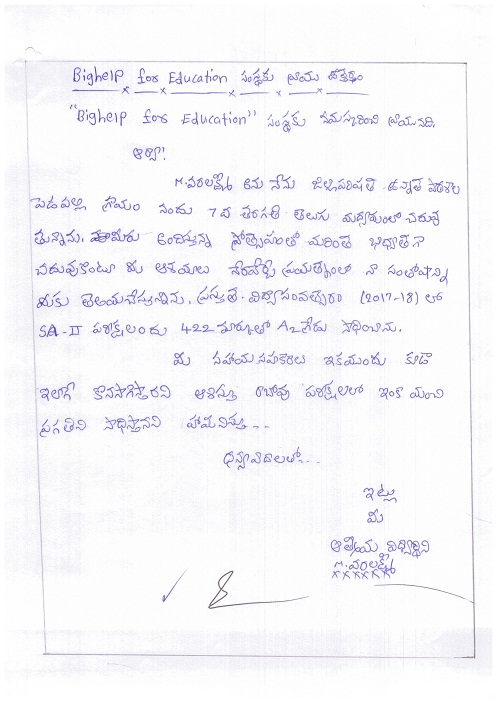 Bighelp for Education సంస్థకు వ్రాయు ఉత్తరం
"Bighelp for Education" సంస్థకు నమస్కరించి వ్రాయునది.
ఆర్యా!
M. వరలక్ష్మి అను నేను జిల్లాపరిషత్ ఉన్నత పాఠశాల
పెదపల్లి గ్రామం నందు 7వ తరగతి తెలుగు మధ్యమంలో చదువు
తున్నాను. మీరు అందిస్తున్న ప్రోత్సాహంతో మరింత బాధ్యతగా
చదువుకొంటూ మీ ఆశయాలు నెరవేర్చే ప్రయత్నంలో నా సంతోషాన్ని
మీకు తెలియచేస్తున్నాను. ప్రస్తుత విద్యాసంవత్సరం (2017-18) లో
SA-II పరీక్షలందు 422 మార్కులతో A2 గ్రేడు సాధించాను.
మీ సహాయ సహకారాలు ఇకముందు కూడా
ఇలాగే కొనసాగిస్తారని ఆశిస్తూ రాబోవు పరీక్షలలో ఇంకా మంచి
ప్రగతిని సాధిస్తానని హామీనిస్తూ...
ధన్యవాదాలతో...
ఇట్లు
మీ
ఆత్మీయ విద్యార్థిని
M. వరలక్ష్మి